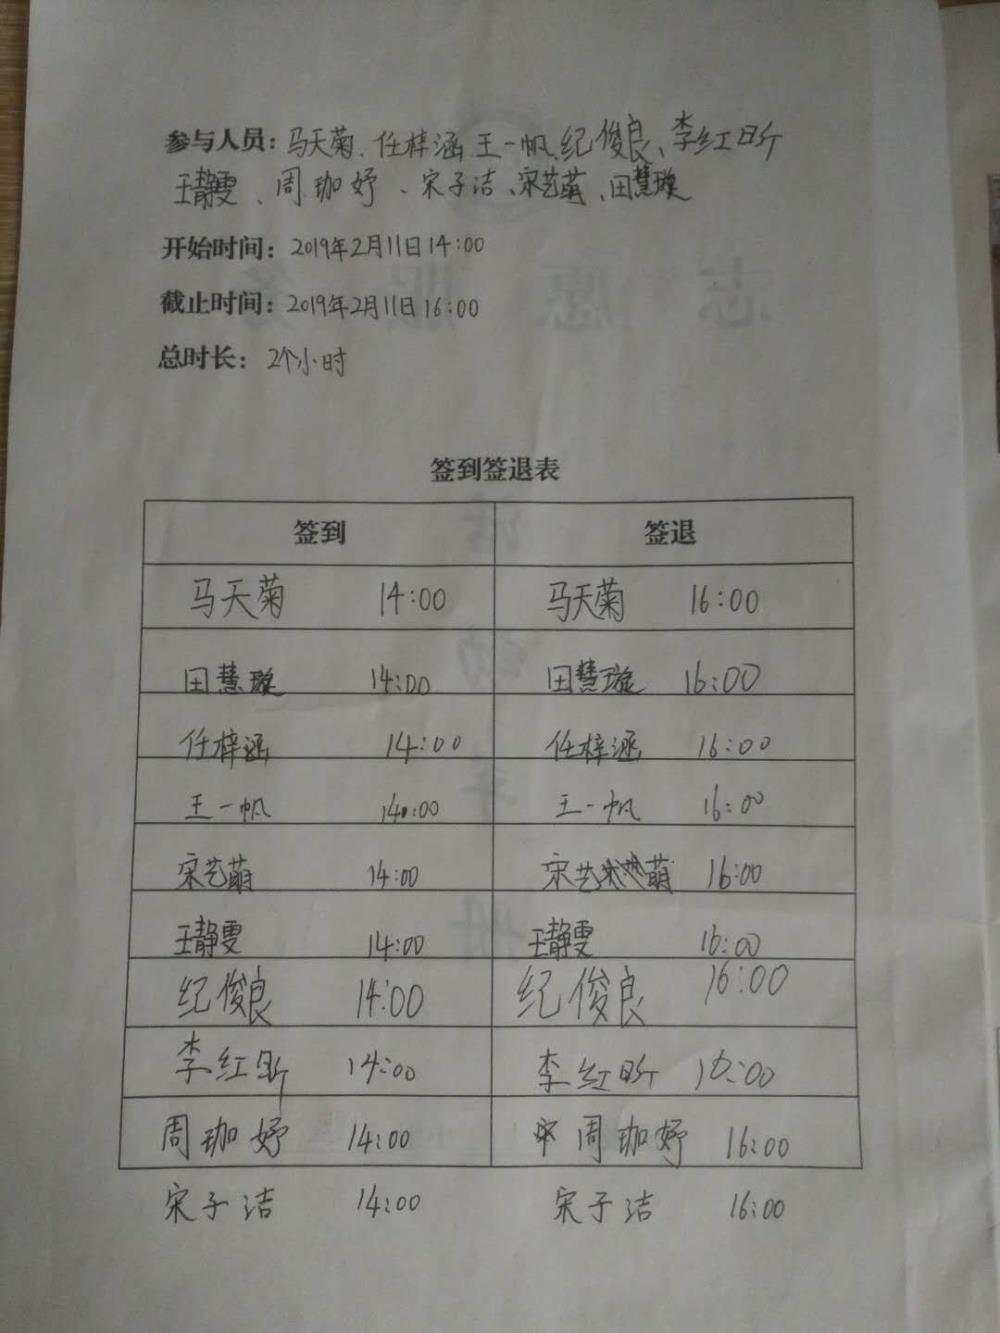 参与人员：马天菊、任梓涵、王一帆、纪俊良、李红昕
王静雯、周珈妤、宋子洁、宋艺萌、田慧璇
开始时间：2019年2月11日14:00
截止时间：2019年2月11日16:00
总时长：2个小时
签到签退表
签到 签退
马天菊 14:00 马天菊 16:00
田慧璇 14:00 田慧璇 16:00
任梓涵 14:00 任梓涵 16:00
王一帆 14:00 王一帆 16:00
宋艺萌 14:00 宋艺萌 16:00
王静雯 14:00 王静雯 16:00
纪俊良 14:00 纪俊良 16:00
李红昕 14:00 李红昕 16:00
周珈妤 14:00 周珈妤 16:00
宋子洁 14:00 宋子洁 16:00